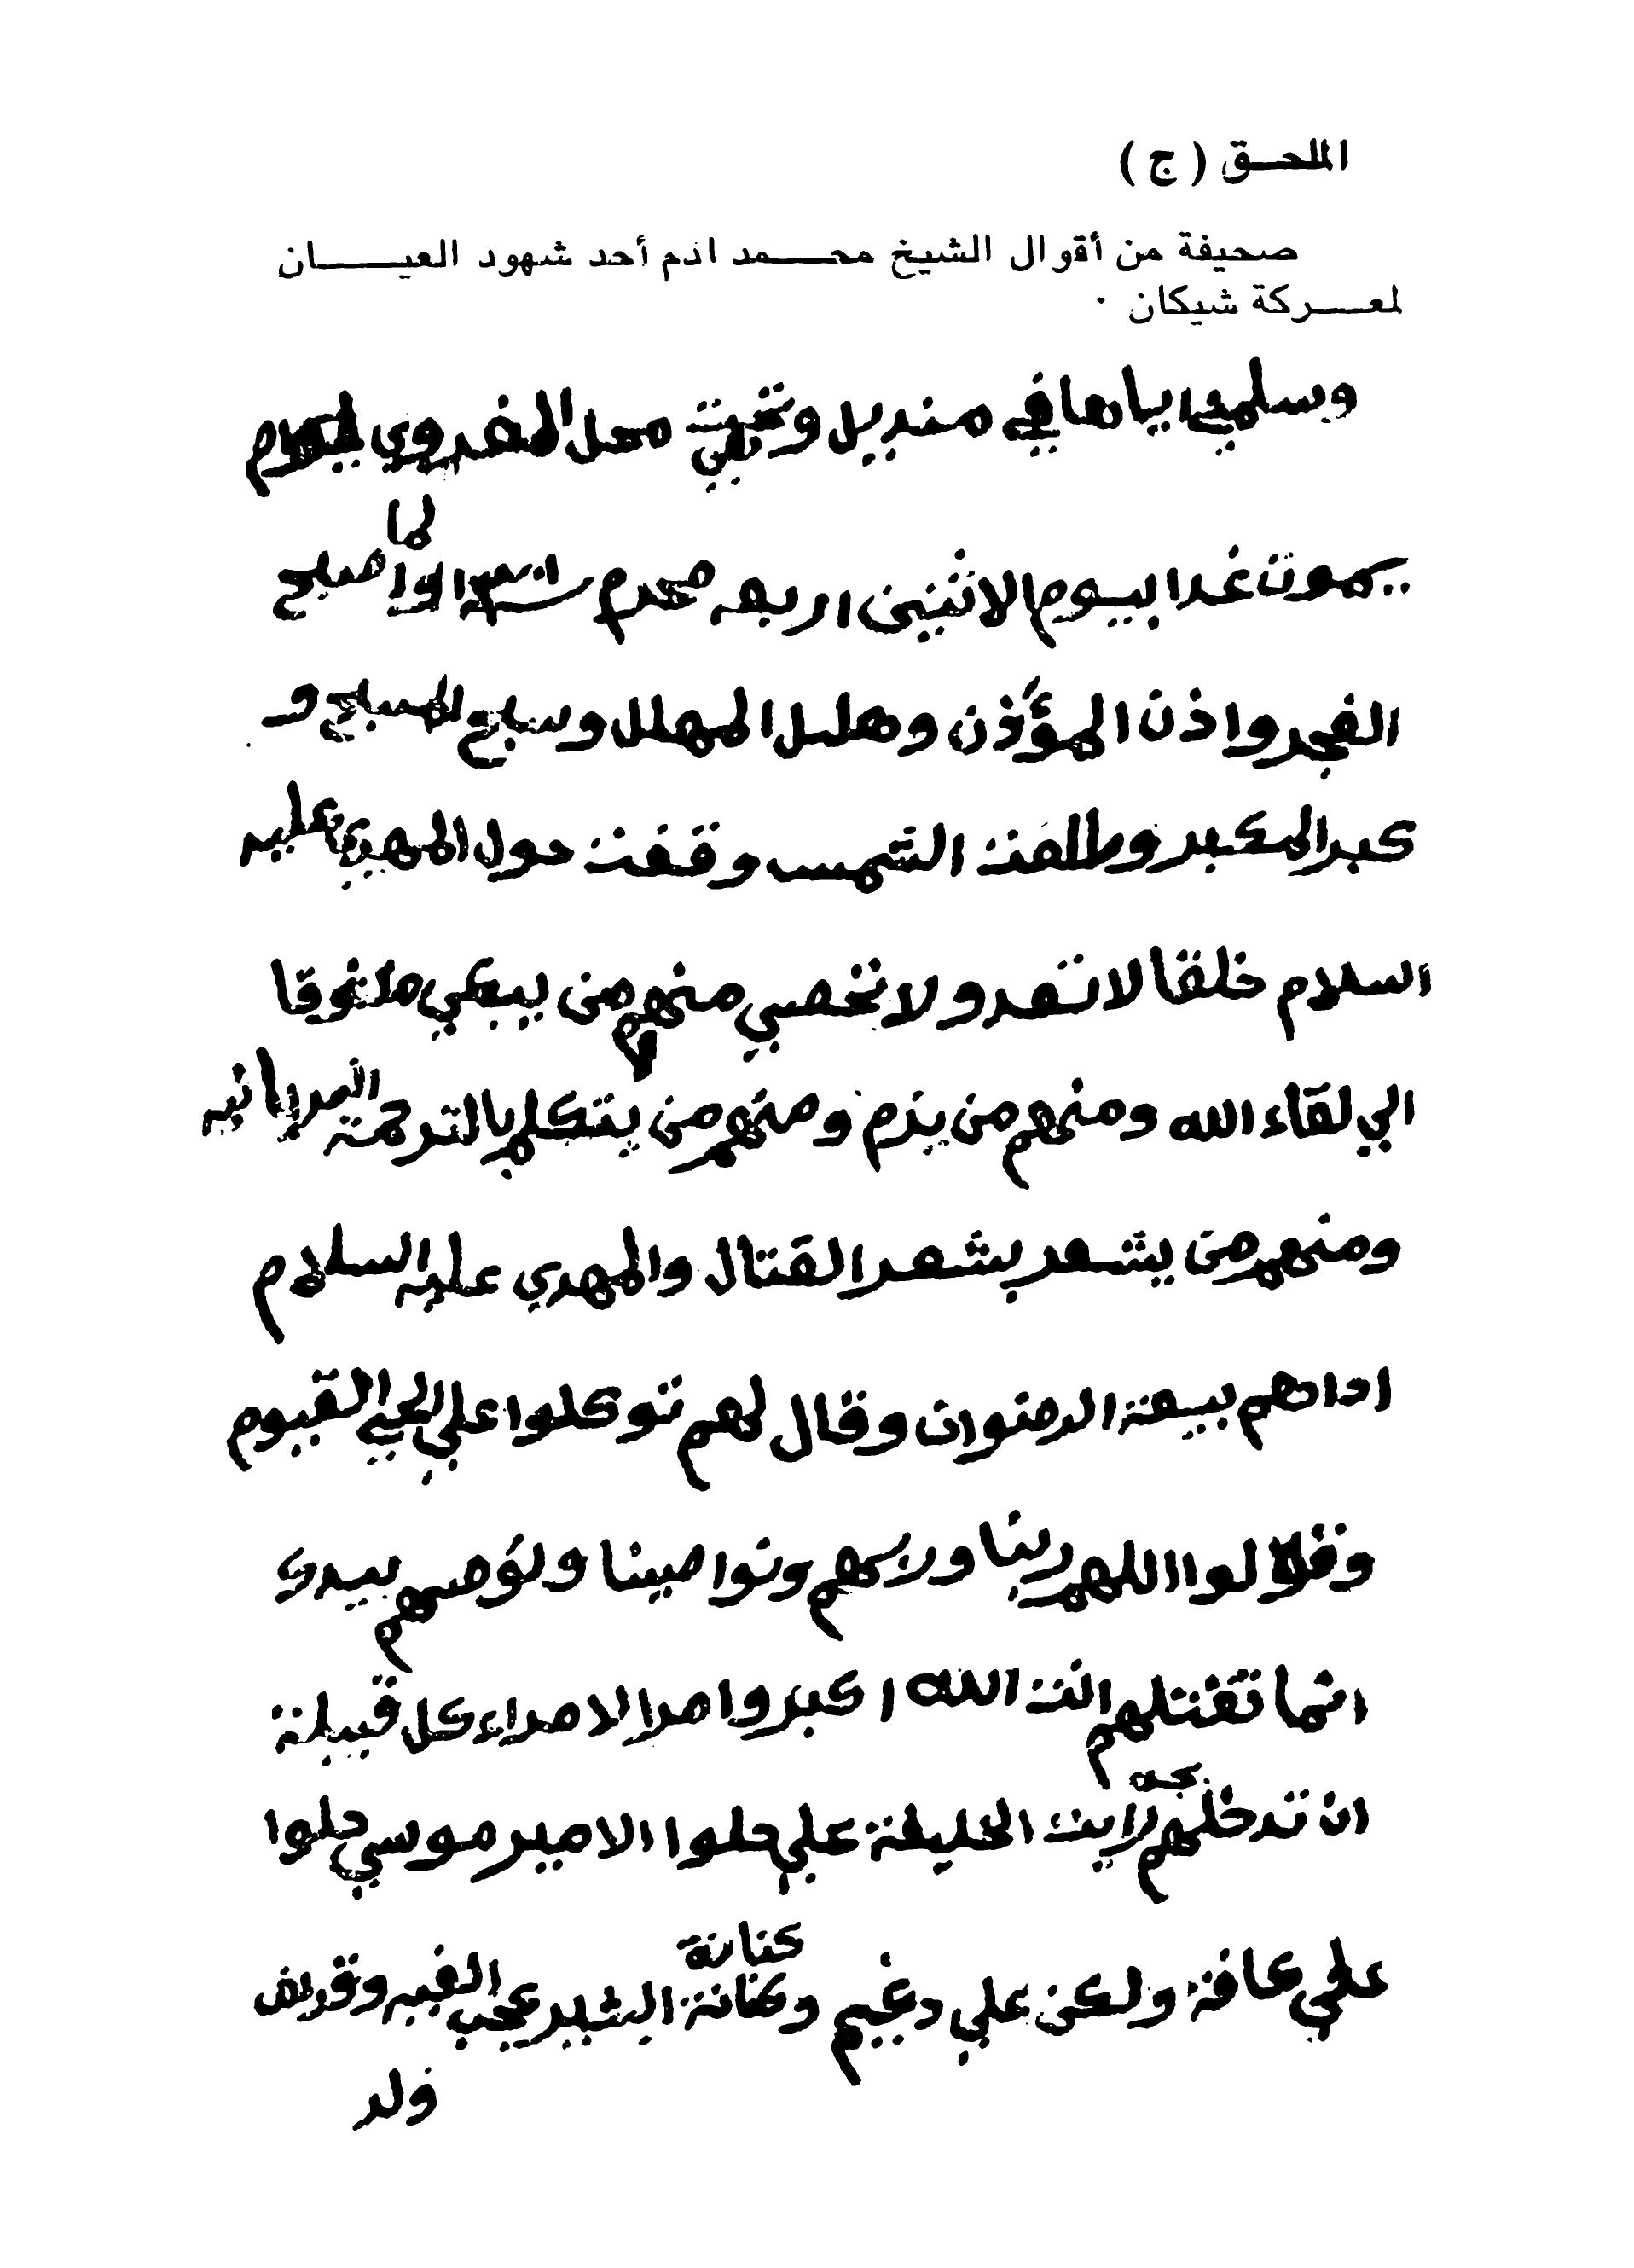 الملحق (ج)
صحيفة من أقوال الشيخ محمد ادم أحد شهود العيان
لمعركة شيكان .
وسلمني اياها في منديل محل المغدوي
يموت غدا بيوم الاثنين اربعه محرم لما اصبح
الفجر واذن المؤذن وهلل المهلل وسبح المسبح و
كبر المكبر وطلعت الشمس وقفت حول المهدي عليه
السلام خلقا لا تعد ولا تحصي منهم من يبكي متوقا
الي لقاء الله ومنهم من يزم ومنهم من يتكلم بالترجمة السريانيه
ومنهم من يشعر بشعر القتال والمهدي عليه السلام
ادادهم ببيعة الرضوان وقال لهم توكلوا علي الحي القيوم
وقولوا اللهم ربنا وربهم ونواصينا ونوصيهم بيدك
انما تقتلهم انت الله اكبر وامرا الامراء كل قبيلة
ان تدخل بجهة راية الخليفة علي حلوا الامير موسي حلوا
علي عافة ولكن علي دغيم وكنانة كنانة البشير عجب الفيه وقريض
ولد